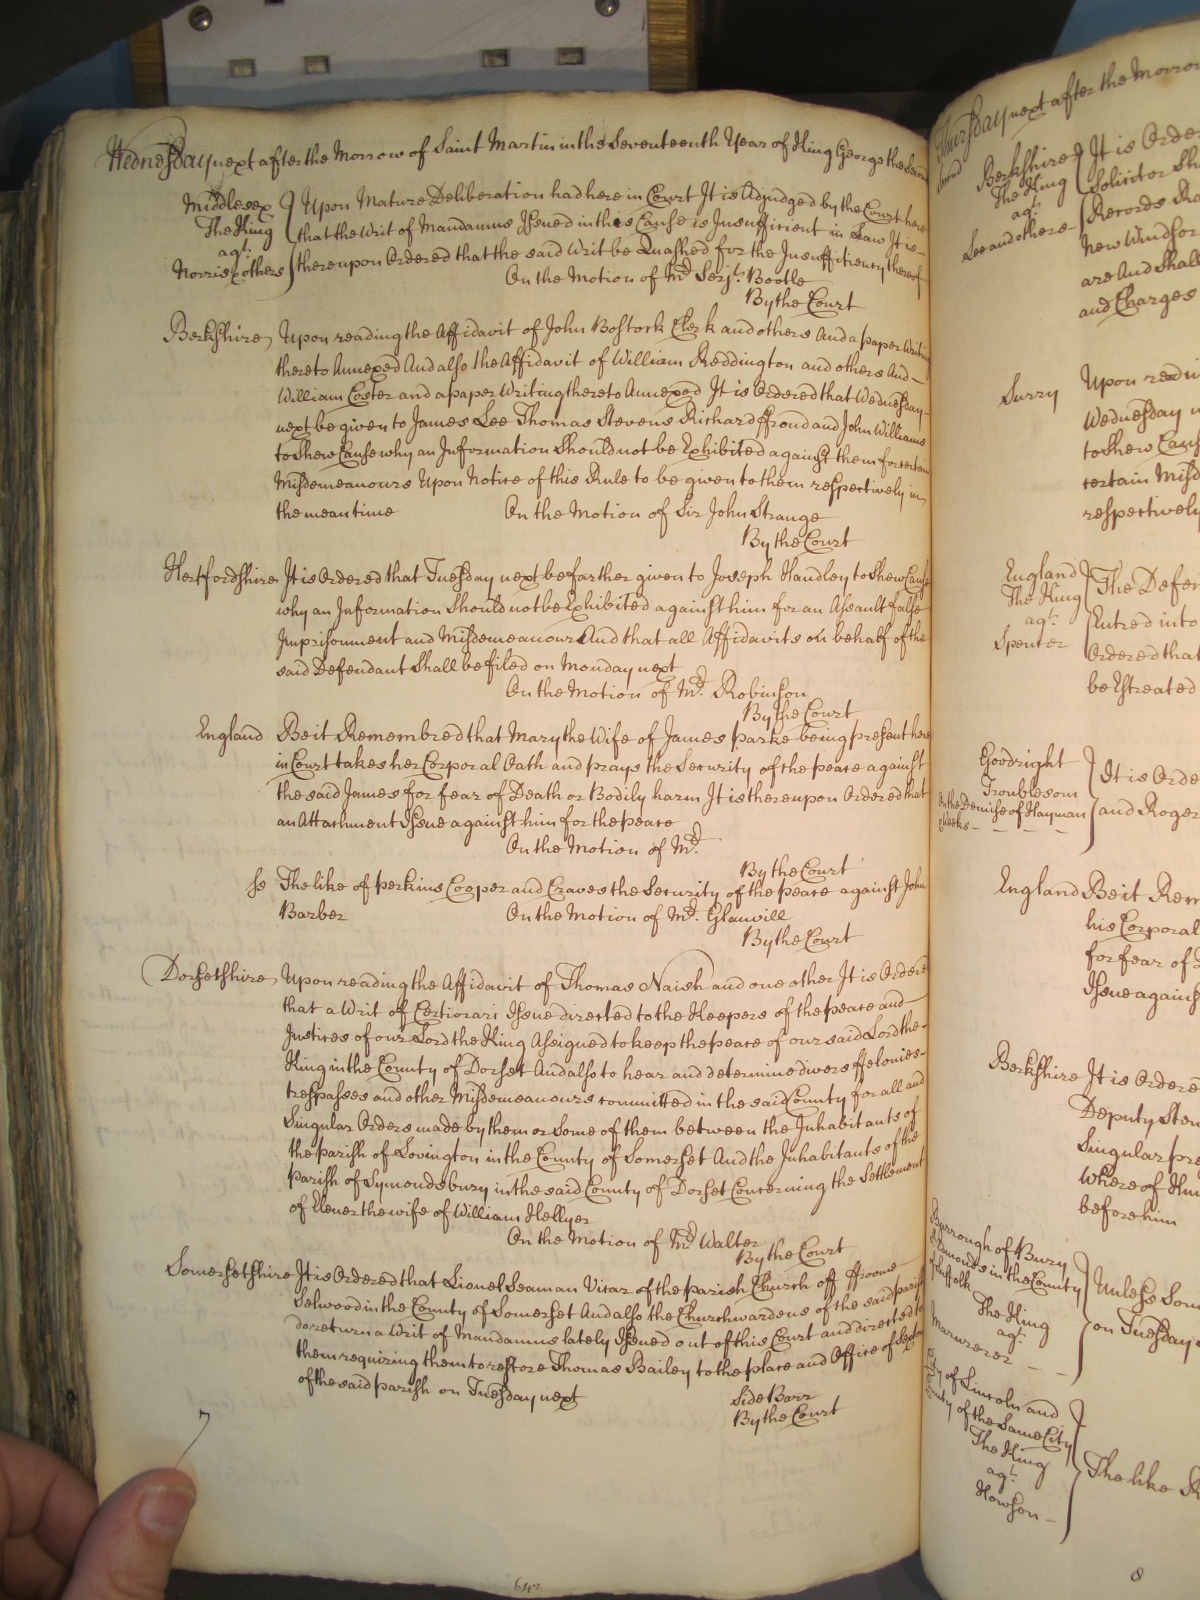 Wednesday next after the Morrow of Saint Martin in the Seventeenth Year of King George the Second
Middlesex
The King
agt.
Norris & others
Upon Mature Deliberation had here in Court It is Adjudged by the Court here
that the Writ of Mandamus Issued in this Cause is Insufficient in Law It is
thereupon Ordered that the said Writ be Quashed for the Insufficiency thereof
On the Motion of Mr. Serjt. Bootle
By the Court
Berkshire Upon reading the Affidavit of John Bostock Clerk and others And a paper Writing
thereto Annexed And also the Affidavit of William Reddington and others And
William Coster and a paper Writing thereto Annexed It is Ordered that Wednesday
next be given to James Lee Thomas Stevens Richard ffroud and John Williams
to shew Cause why an Information should not be Exhibited against them for certain
Misdemeanours Upon Notice of this Rule to be given to them respectively in
the mean time On the Motion of Sir John Strange
By the Court
Hertfordshire It is Ordered that Tuesday next be farther given to Joseph Handley to shew Cause
why an Information should not be Exhibited against him for an Assault false
Imprisonment and Misdemeanour And that all Affidavits on behalf of the
said Defendant shall be filed on Monday next
On the Motion of Mr. Robinson
By the Court
England Be it Remembred that Mary the Wife of James Parke being present here
in Court takes her Corporal Oath and prays the Security of the peace against
the said James for fear of Death or Bodily harm It is thereupon Ordered that
an Attachment Issue against him for the peace
On the Motion of Mr.
By the Court
ss The like of Perkins Cooper and Craves the Security of the peace against John
Barber On the Motion of Mr. Glanvill
By the Court
Dorsetshire Upon reading the Affidavit of Thomas Naish and one other It is Ordered
that a Writ of Certiorari Issue directed to the Keepers of the peace and
Justices of our Lord the King Assigned to keep the peace of our said Lord the
King in the County of Dorset And also to hear and determine divers ffelonies
trespasses and other Misdemeanours committed in the said County for all and
Singular Orders made by them or some of them between the Inhabitants of
the parish of Lovington in the County of Somerset And the Inhabitants of the
parish of Symondsbury in the said County of Dorset Concerning the Settlement
of Elener the wife of William Hellyer
On the Motion of Mr. Walter
By the Court
Somersetshire It is Ordered that Lionel Seaman Vicar of the parish Church off ffroome
Selwood in the County of Somerset And also the Churchwardens of the said parish
do return a Writ of Mandamus lately Issued out of this Court and directed to
them requiring them to restore Thomas Bailey to the place and Office of Sexton
of the said parish on Tuesday next
Side Barr
By the Court
7
642
Thursday next after the Morrow
Berkshire
The King
agt.
Lee and others
It is Orde
Solicitor Sh
Records Ro
New Windsor
are And shall
and Charges
Surry Upon readi
Wednesday n
to shew Caus
certain Misd
respectively
England
The King
agt.
Spenter
The Defen
Entred into
Ordered that
be Estreated
Goodright
Troublesom
On the Demise of Hayman
& Weeks
It is Orde
and Roger
England Be it Rem
his Corporal
for fear of
Issue against
Berkshire It is Ordere
Deputy Stew
Singular pre
where of Hu
before him
Burrough of Bury
St Edmonds in the County
of Suffolk
The King
agt.
Unless Som
on Tuesday
City of Lincoln and
County of the same City
The King
agt.
Howson
The like R
8